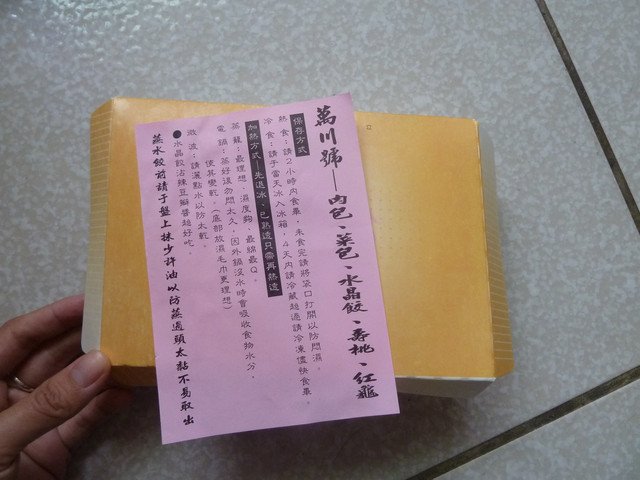 萬川號—肉包、菜包、水晶餃、壽桃、紅龜
保存方式
熱食：請2小時內食畢，未食完請將袋口打開以防悶濕。
冷食：請于當天冰入冰箱，4天內請冷藏超過請冷凍儘快食畢。
加熱方式—先退冰，已熟透只需再熱透
蒸籠：最理想，濕度夠，最綿最Q。
電鍋：蒸好後勿悶太久，因外鍋沒水時會吸收食物水分，
使其變乾。（底部放濕毛巾更理想）
微波：請灑點水以防太乾。
●水晶餃沾辣豆瓣醬超好吃。
蒸水餃前請于盤上抹少許油以防蒸過頭太黏不易取出
12